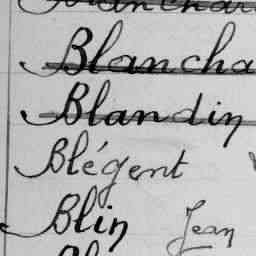 Blancha
Blandin
Blégent
Blin Jean